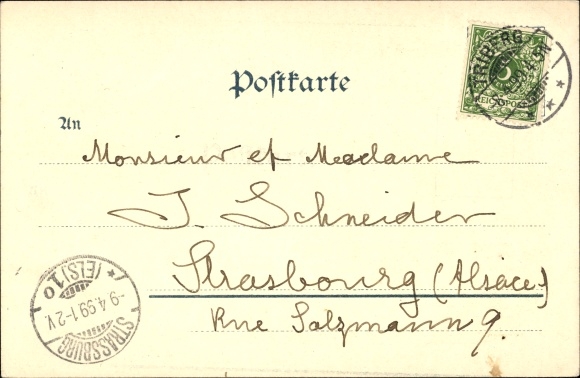 Postkarte
TRIBERG
REICHSPOST
An
Monsieur et Madame
J. Schneider
Strasbourg (Alsace)
Rue Salzmann 9.
STRASSBURG
(ELS) 1 o
-9.4.99.1-2V.